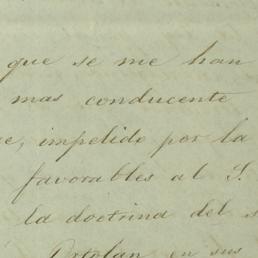 que se me han
mas conducente
impelido por la
favorables al S.
la doctrina del
Ortolan en sus